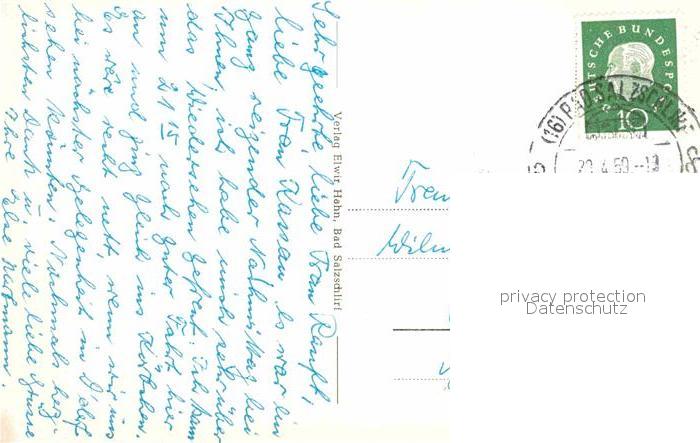 Sehr geehrte liebe Frau Rauft,
liebe Frau Es war ein
ganz reizender Nachmittag bei
Ihnen, ich habe mich sehr über
das Wiedersehen gefreut. Ich kam
um 21 15 nach guter Fahrt hier
an und ging gleich ins Körbchen.
Es wäre recht nett, wenn wir uns
bei nächster Gelegenheit in D'dorf
sehen könnten. Nochmals herz-
lichsten Dank u. viele liebe Grüsse
Ihre Else Hartmann.
Verlag Elwir, Hahn, Bad Salzschlirf
DEUTSCHE BUNDESPOST
10
(16) BAD SALZSCHLIRF
Frau
privacy protection
Datenschutz